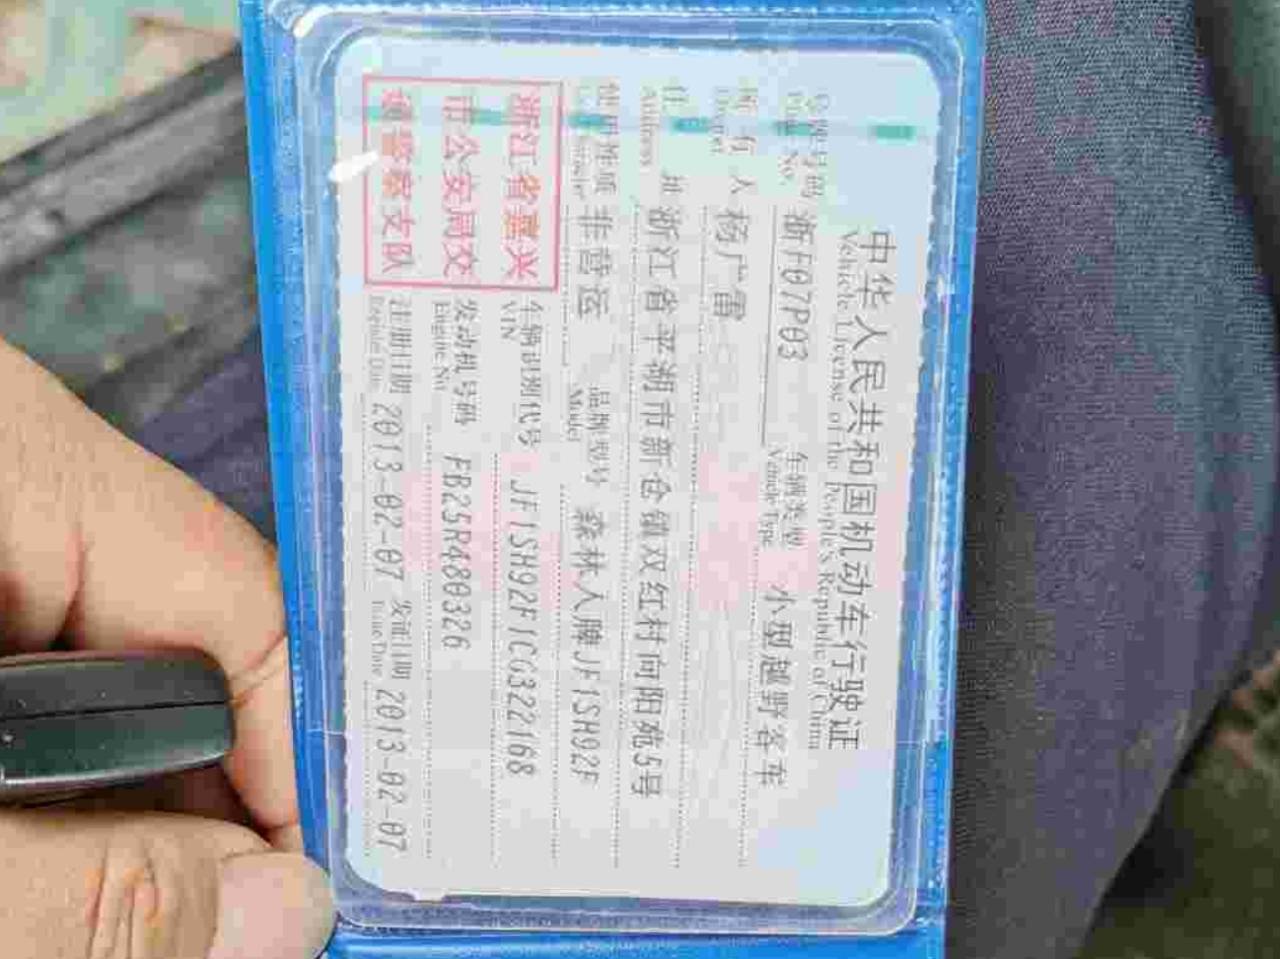 中华人民共和国机动车行驶证
Vehicle License of the People's Republic of China
号牌号码 浙F07P03 车辆类型 小型越野客车
Plate No. Vehicle Type
所有人 杨广雷
Owner
住址 浙江省平湖市新仓镇双红村向阳苑5号
Address
使用性质 非营运 品牌型号 森林人牌JF1SH92F
Model
浙江省嘉兴
市公安局交
通警察支队
车辆识别代号 JF1SH92F1CG322168
VIN
发动机号码 FB25R480326
Engine No.
注册日期 2013-02-07 发证日期 2013-02-07
Register Date Issue Date